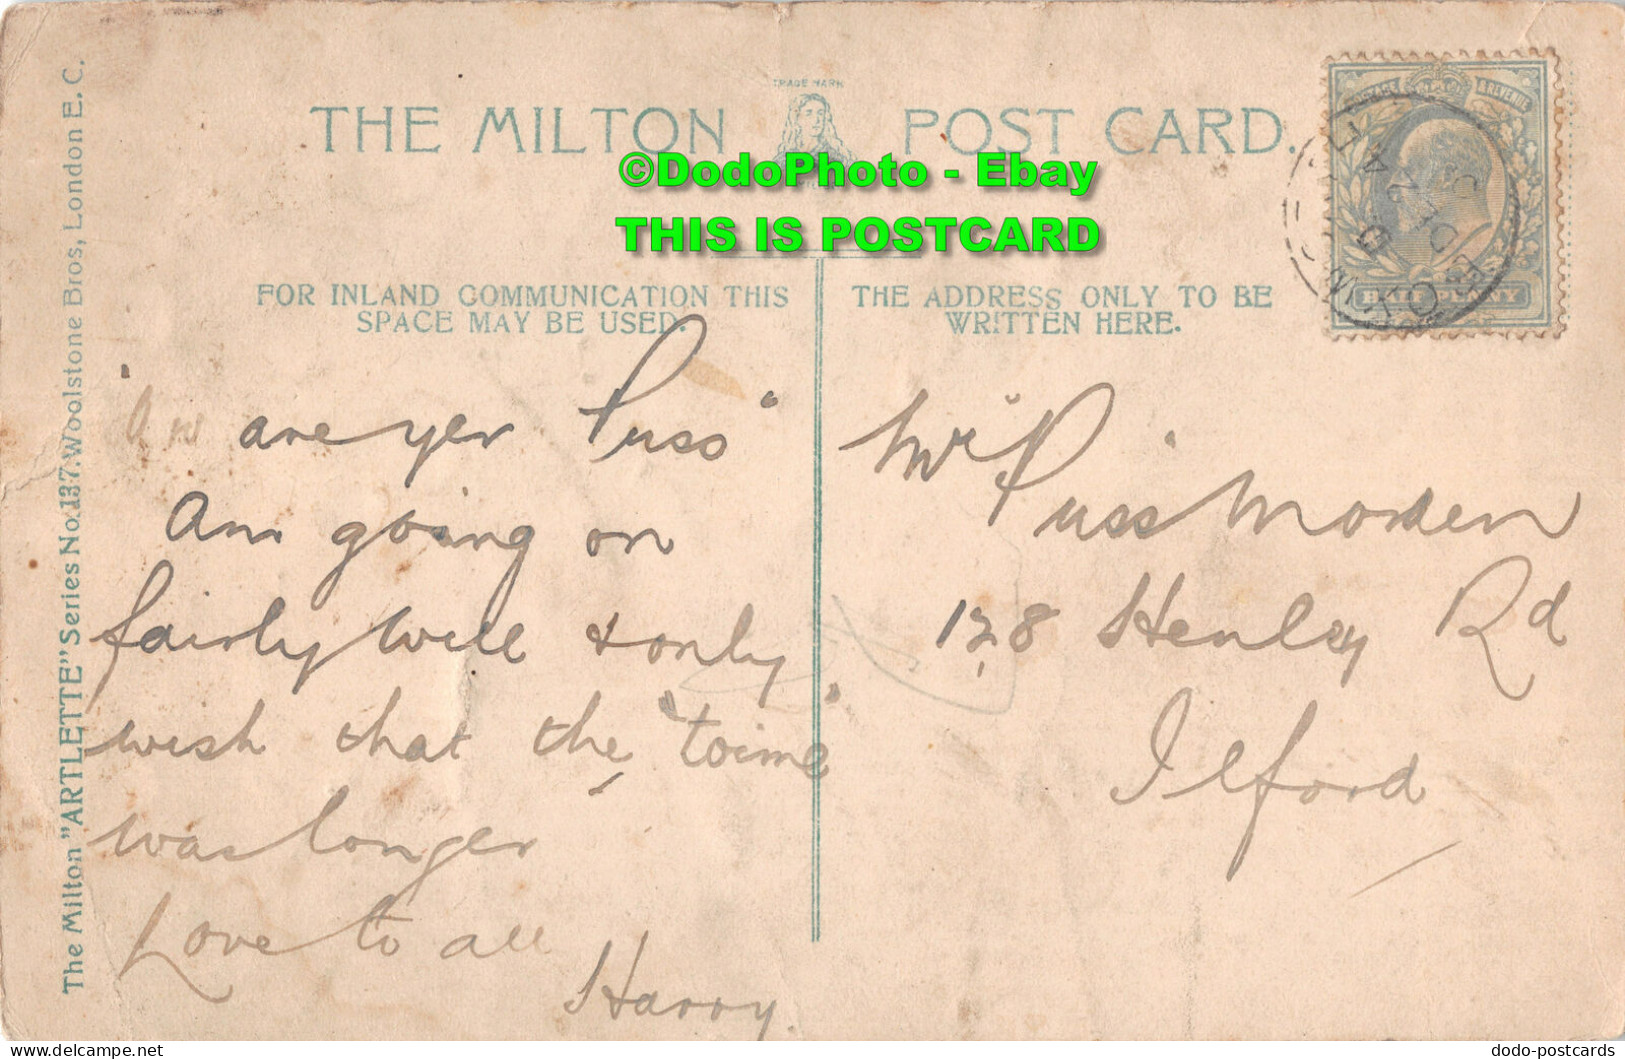 TRADE MARK
THE MILTON POST CARD.
©DodoPhoto - Ebay
THIS IS POSTCARD
FOR INLAND COMMUNICATION THIS
SPACE MAY BE USED.
THE ADDRESS ONLY TO BE
WRITTEN HERE.
The Milton "ARTLETTE" Series No.137. Woolstone Bros, London E.C.
& REVENUE
HALF PENNY
are yer Puss"
Am going on
fairly well & only
wish that the "toime"
was longer
Love to all
Harry.
Mr "Puss" Morden
128 Henley Rd
Ilford
dodo-postcards